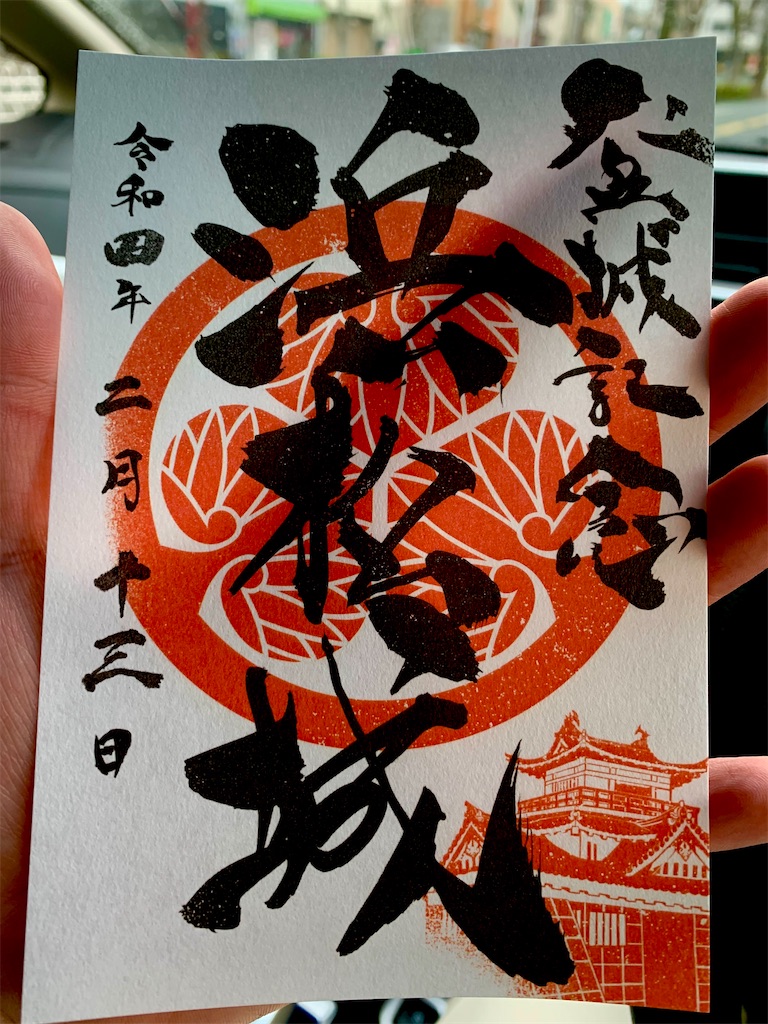 登城記念
浜松城
令和四年 二月十三日